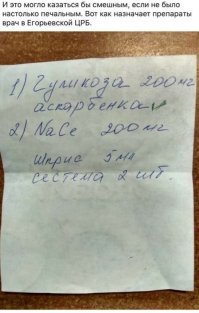 И это могло казаться бы смешным, если не было
настолько печальным. Вот как назначает препараты
врач в Егорьевской ЦРБ.
1) Гуликоза 200 мг
аскарбенка
2) NaCe 200 мг
Шприс 5 мл
сестема 2 шт.